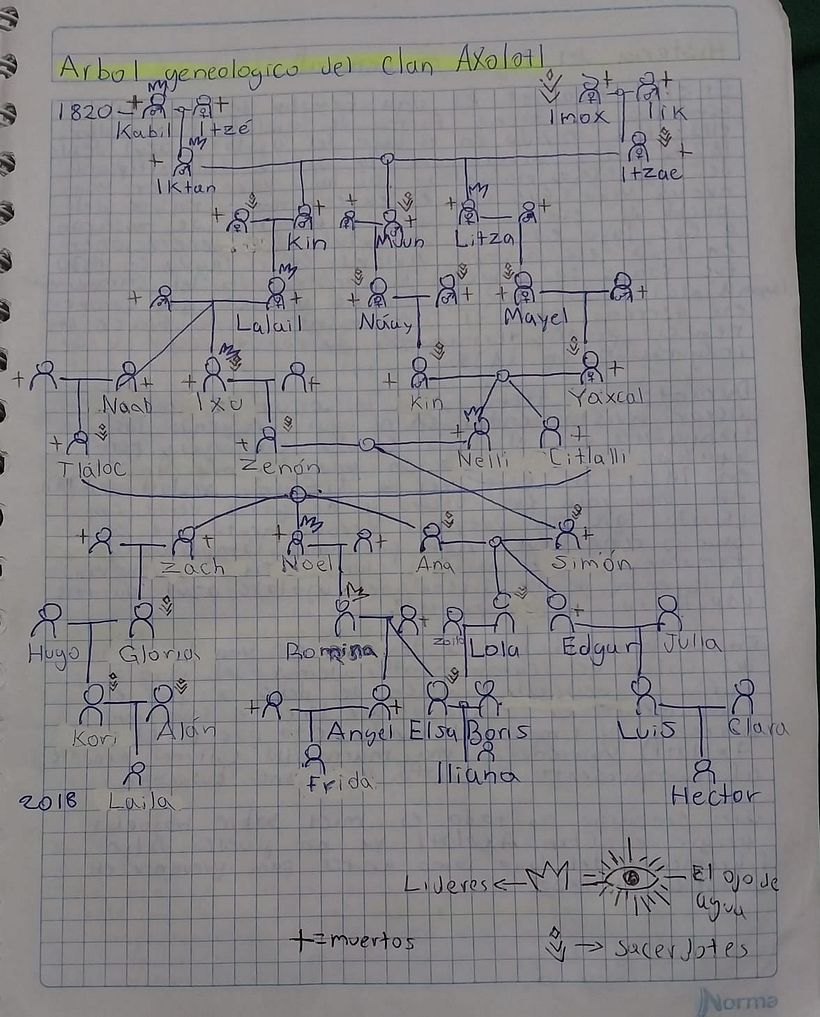 Arbol geneologico del Clan Axolotl
1820
Kabil
Itzé
Imox
Iktan
Itzae
Kin
Litza
Lalail
Náuy
Mayel
Naab
Ixu
Kin
Yaxcal
Tláloc
Zenón
Nelli
Citlalli
Zach
Noel
Ana
Simón
Hugo
Gloria
Zoilo
Lola
Edgar
Julia
Kori
Alán
Angel
Elsa
Boris
Luis
Clara
Iliana
2018
Laila
Frida
Hector
Lideres
El ojo de
agua
+=muertos
sacerdotes
Norma